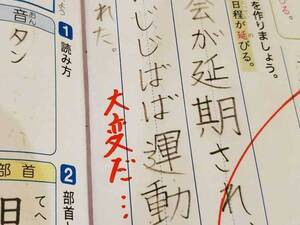 を作りましょう。
日程が延びる。
会が延期され、
じじばば運動
れた。
大変だ…
音
おん
タン
1 読み方
部首
てへ
2 部首